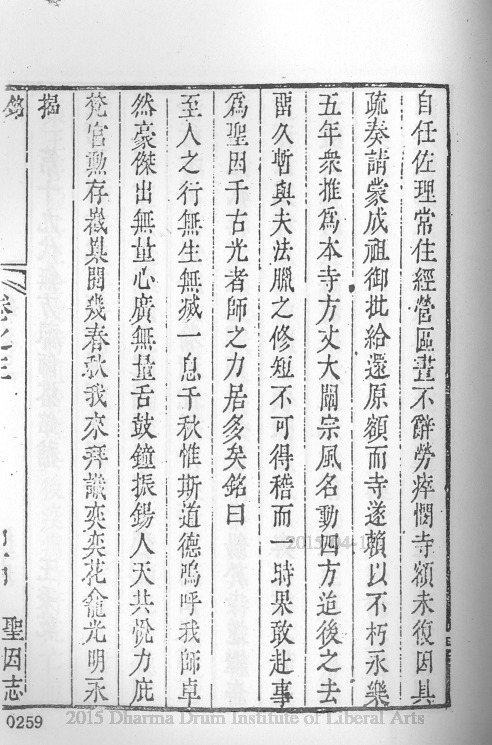 自任佐理常住經營區畫不辭勞瘁憫寺額未復因具
疏奏請蒙成祖御批給還原額而寺遂賴以不朽永樂
五年衆推爲本寺方丈大闡宗風名動四方迨後之去
畱久暫與夫法臘之修短不可得稽而一時果敢赴事
爲聖因千古光者師之力居多矣銘曰
至人之行無生無滅一息千秋惟斯道德嗚呼我師卓
然豪傑出無量心廣無量舌鼓鐘振錫人天共悅力庇
梵宮勲存巀嶪閱幾春秋我來拜謁奕奕花龕光明永
揭
銘
卷之三
聖因志
0259
2015-04-1
2015 Dharma Drum Institute of Liberal Arts